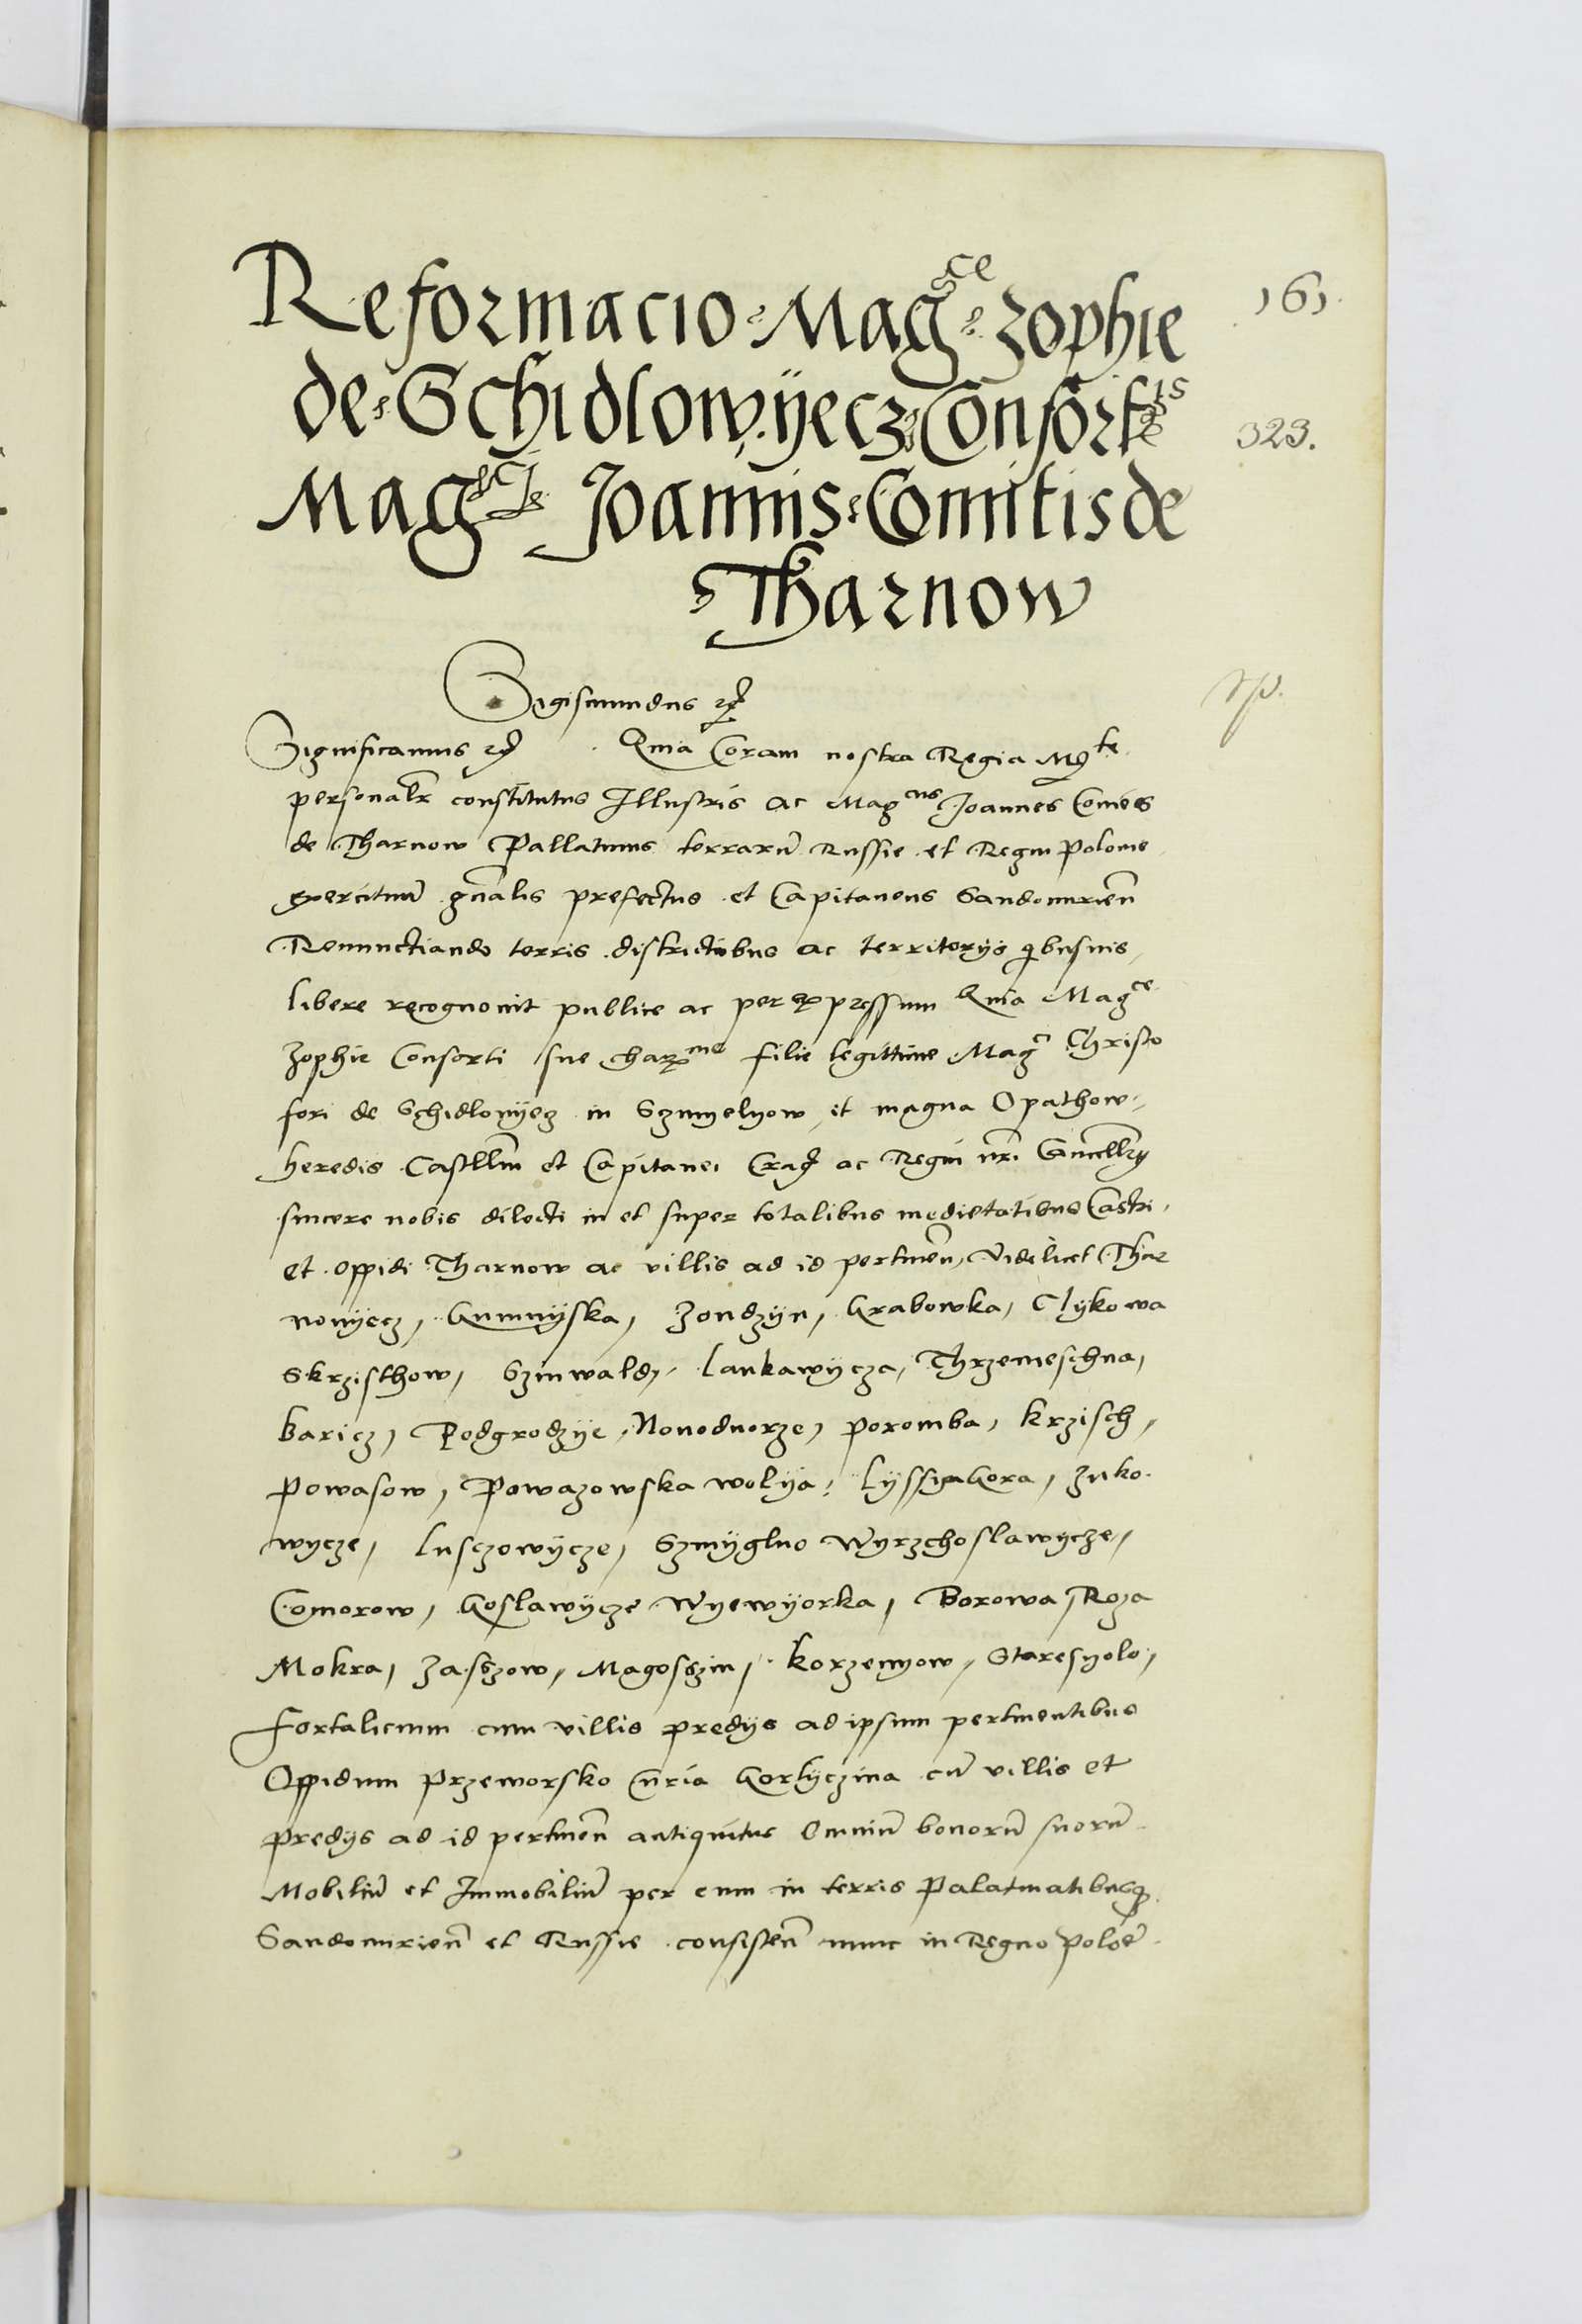 Reformacio Mag^ce Zophie
161.
de Schidlowyecz Consort^is
323.
Mag^ci Joannis Comitis de
Tharnow
Sigismundus
Significamus Quia Coram nostra Regia M^te
personalr constitutus Illustris ac Mag^cus Joannes Comes
de Tharnow Pallatinus terrarū Russie et Regni Polonie
exercituū gn̄alis prefectus et Capitaneus Sandomirien̄
Renunctiando terris districtubus ac territorys quibusuis
libere recognouit publice ac per expressum Quia Mag^ce
Zophie Consorti sue char^me filie legittime Mag^ci Christo
fori de Schidlowyecz in Szmyelyow et magna Opathow
heredis Castell̄ni et Capitanei Crac ac Regni nr̄i Cancell̄ry
sincere nobis dilecti in et super totalibus medietatibus Castri
et oppidi Tharnow ac villis ad id pertinen̄ videlicet Thar
nowyecz, Gumnyska, Zondzyn, Grabowka, Clykowa
Skrzisthow, Szinwald, Lankawycza, Thrzemeschna,
Karicz, Podgrodzye Nowodworze, Poromba, Krzisch,
Powasow, Powazowska wolya, Lyssa Gora, Zuko
wycze, Lusczowycze, Szmygluo Wyrzchoslawycze,
Comorow, Goslawycze Wyewyorka, Borowa, Roza
Mokra, Zaszow, Magosszin, Korzenyow, Staresyolo,
Fortalicium cum villis predys ad ipsum pertinentibus
Oppidum Przeworsko Curia Gorlyczina cū villis et
predys ad id pertinen̄ antiquitus Omniū bonorū suorū
Mobiliū et Immobiliū per eum in terris Palatinatibusque
Sandomirien̄ et Russie consisten̄ nunc in Regno Polōe